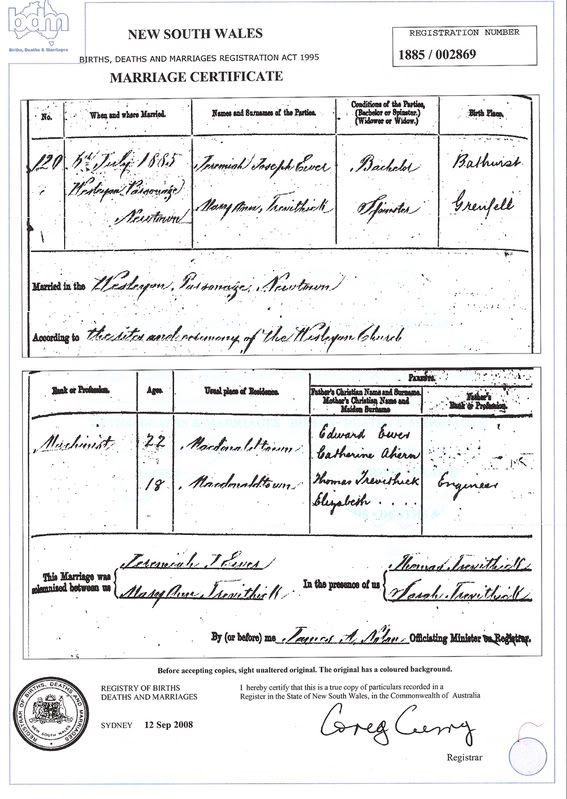 bdm
Births, Deaths & Marriages
NEW SOUTH WALES
BIRTHS, DEATHS AND MARRIAGES REGISTRATION ACT 1995
MARRIAGE CERTIFICATE
REGISTRATION NUMBER
1885 / 002869
No. When and where Married. Names and Surnames of the Parties. Conditions of the Parties, (Bachelor or Spinster.) (Widower or Widow.) Birth Place.
120 July 1885 Jeremiah Joseph Ewer Bachelor Bathurst
Wesleyan Parsonage
Newtown Mary Ann Trevithick Spinster Grenfell
Married in the Wesleyan Parsonage, Newtown
According to the rites and ceremony of the Wesleyan Church
Rank or Profession. Ages. Usual place of Residence. PARENTS.
Father's Christian Name and Surname. Mother's Christian Name and Maiden Surname Father's Rank or Profession.
Machinist 22 Macdonaldtown Edward Ewer
Catherine Ahern
18 Macdonaldtown Thomas Trevithick Engineer
Elizabeth . . . .
This Marriage was solemnised between us
Jeremiah J Ewer
Mary Ann Trevithick
In the presence of us
Thomas Trevithick
Sarah Trevithick
By (or before) me James A. Nolan Officiating Minister or Registrar.
Before accepting copies, sight unaltered original. The original has a coloured background.
REGISTRY OF BIRTHS
DEATHS AND MARRIAGES
I hereby certify that this is a true copy of particulars recorded in a
Register in the State of New South Wales, in the Commonwealth of Australia
SYDNEY 12 Sep 2008
Greg Curry
Registrar
REGISTRAR OF BIRTHS, DEATHS AND MARRIAGES
NEW SOUTH WALES